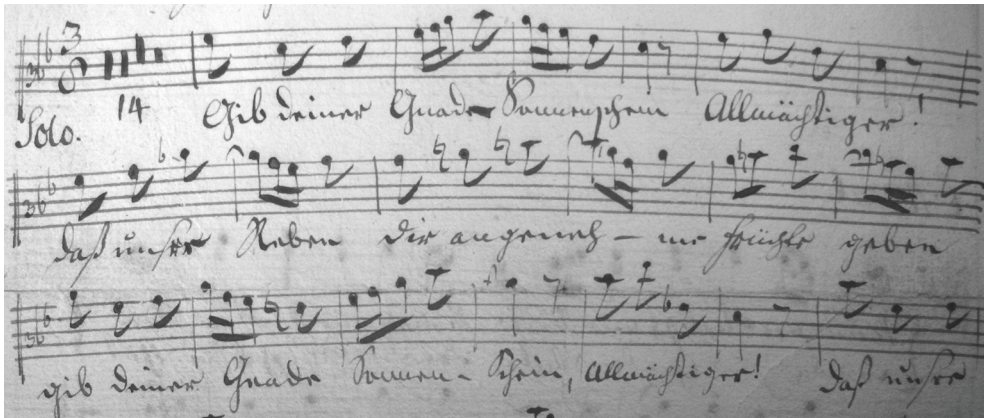 3 8
14
Solo.
Gib deiner Gnade Sonnenschein Allmächtiger!
daß unsre Reben dir angeneh - me früchte geben
gib deiner Gnade Sonnen - Schein, Allmächtiger! daß unsre